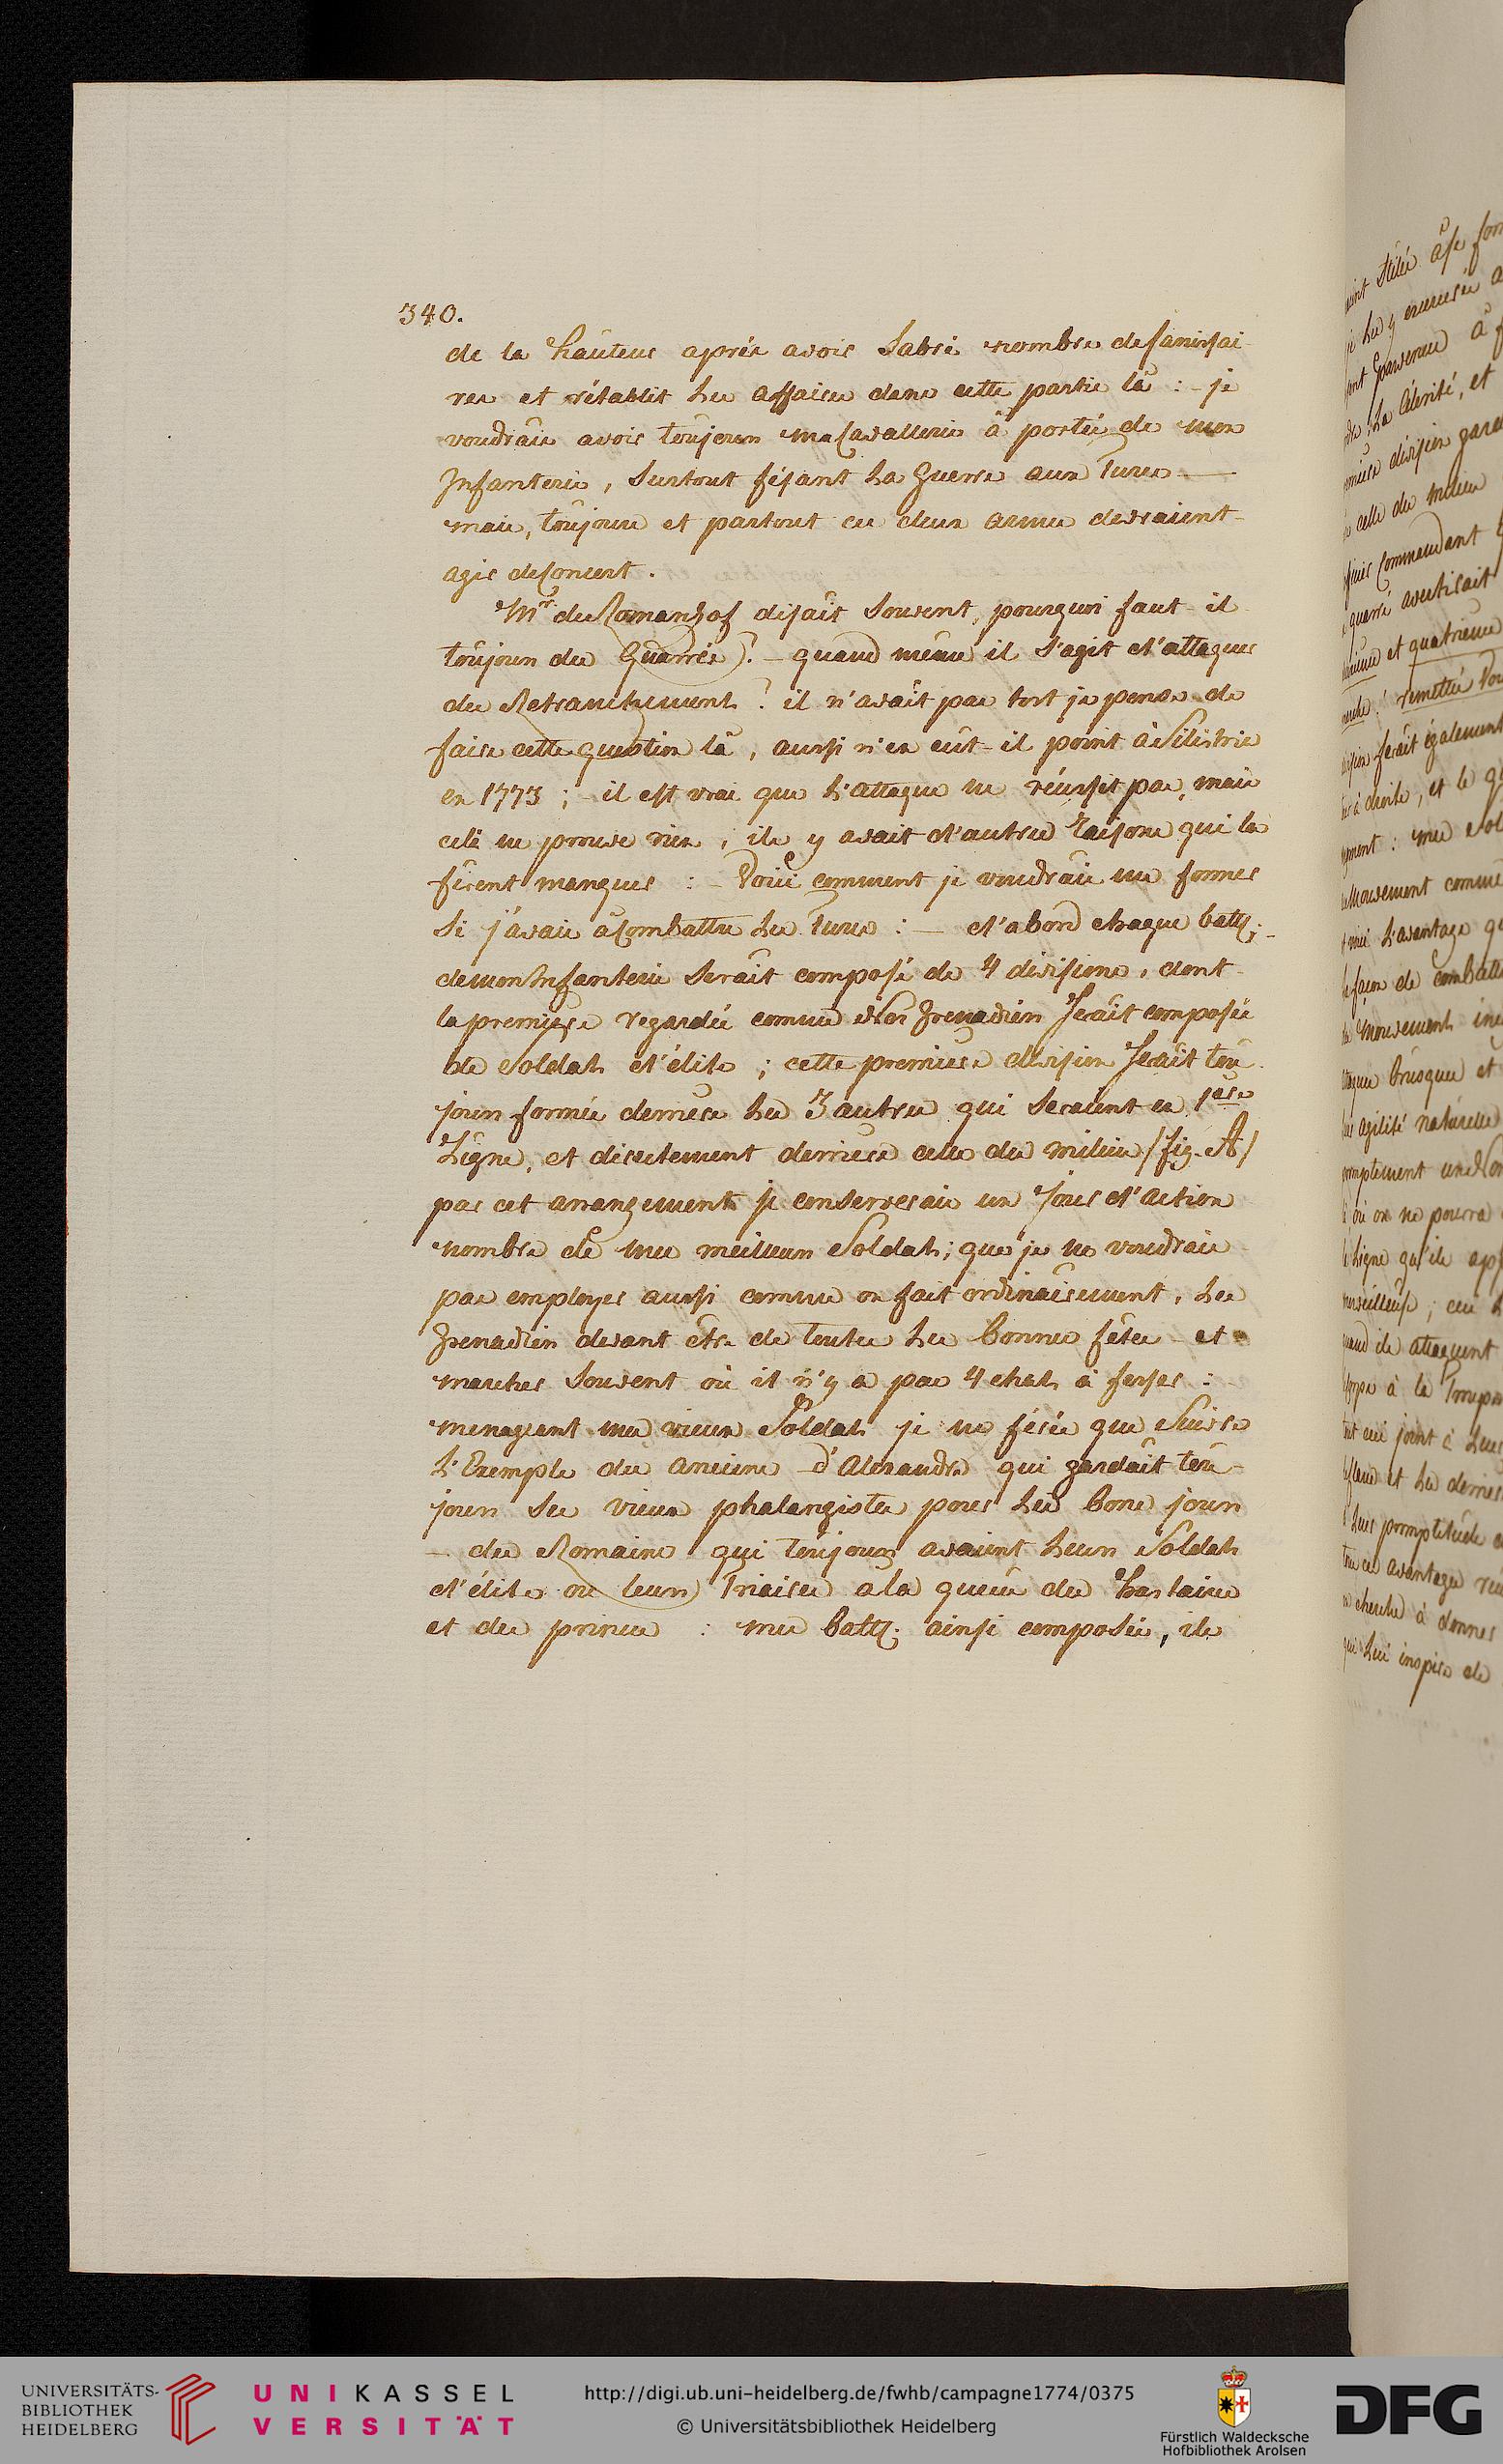 340.
de la hauteur aprés avoir Sabré nombre de Janissai-
res et rétablit Les affaires dans cette partie là : - je
voudrais avoir toujours ma Cavallerie à portée de mon
Infanterie, Surtout fésant La guerre aux Turcs. —
mais, toujours et partout ces deux armes devraient
agir de Concert.
Mr. de Romanzof disait Souvent, pourquoi faut-il
toujours des Quarrés? - quand même il S'agit d'attaquer
des Retranchements? il n'avait pas tort je pense de
faire cette question là, aussi n'en eût-il point à Silistrie
en 1773 ; - il est vrai que L'attaque ne réussit pas, mais
celà ne prouve rien, ils y avait d'autres raisons qui la
firent manquer : - Voici comment je voudrais me former
Si j'avais à Combattre Les Turcs : — d'abord chaque batt:
de mon Infanterie Serait composé de 4 divisions, dont
la premiere regardée comme Nos grenadiers Serait composée
de Soldats d'élite ; cette premiere division Serait tou-
jours formée derriere Les 3 autres qui Seraient en 1ere
Ligne, et directement derriere celle du milieu /fig. A/
par cet arrangement je conserverais un Jour d'action
nombre de mes meilleurs Soldats; que je ne voudrais
pas employer aussi comme on fait ordinairement, Les
grenadiers devant être de toutes Les bonnes fêtes - et
marcher Souvent où il n'y a pas 4 chats à fesser :
menageant mes vieux Soldats je ne ferés que Suivre
L'Exemple des anciens - d'Alexandre qui gardait tou-
jours Ses vieux phalangistes pour Les bons jours
- des Romains qui toujours avaient Leurs Soldats
d'élite ou leurs Triaires à la queuë des hastaires
et des princes : mes batt: ainsi composés, ils
UNIVERSITÄTS-
BIBLIOTHEK
HEIDELBERG
UNIKASSEL
VERSITÄT
http://digi.ub.uni-heidelberg.de/fwhb/campagne1774/0375
© Universitätsbibliothek Heidelberg
Fürstlich Waldecksche
Hofbibliothek Arolsen
DFG